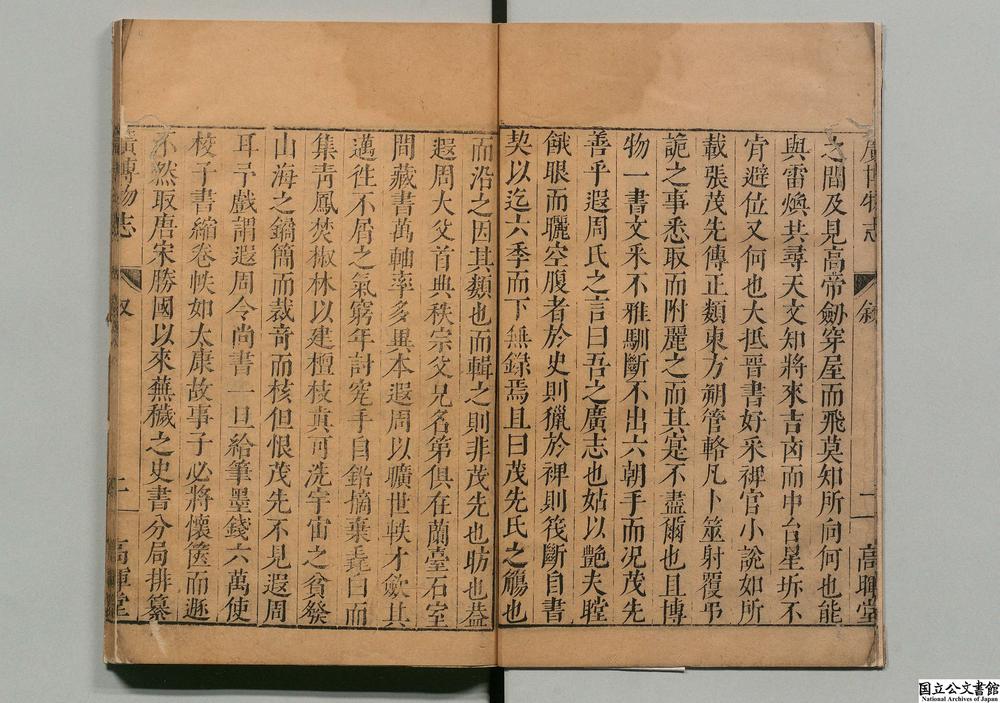 廣博物志 敘 二 高暉堂
之間及見高帝劒穿屋而飛莫知所向何也能
與雷煥共尋天文知將來吉凶而中台星坼不
肯避位又何也大抵晉書好采稗官小說如所
載張茂先傳正類東方朔管輅凡卜筮射覆弔
詭之事悉取而附麗之而其寔不盡爾也且博
物一書文采不雅馴斷不出六朝手而况茂先
善乎遐周氏之言曰吾之廣志也姑以艷夫瞠
餓眼而曬空腹者於史則獵於稗則筏斷自書
契以迄六季而下無錄焉且曰茂先氏之觴也
而沿之因其類也而輯之則非茂先也昉也葢
遐周大父首典秩宗父兄名第俱在蘭臺石室
間藏書萬軸率多異本遐周以曠世軼才歛其
邁往不屑之氣窮年討究手自鉛摘棗毳白而
集青鳳焚椒林以建檀枝真可洗宇宙之貧發
山海之鐍篇而裁奇而核但恨茂先不見遐周
耳予戲謂遐周令尚書一旦給筆墨錢六萬使
校子書縮卷帙如太康故事子必將懷篋而遯
不然取唐宋勝國以來蕪穢之史書分局排纂
廣博物志 叙 二 高暉堂
国立公文書館
National Archives of Japan